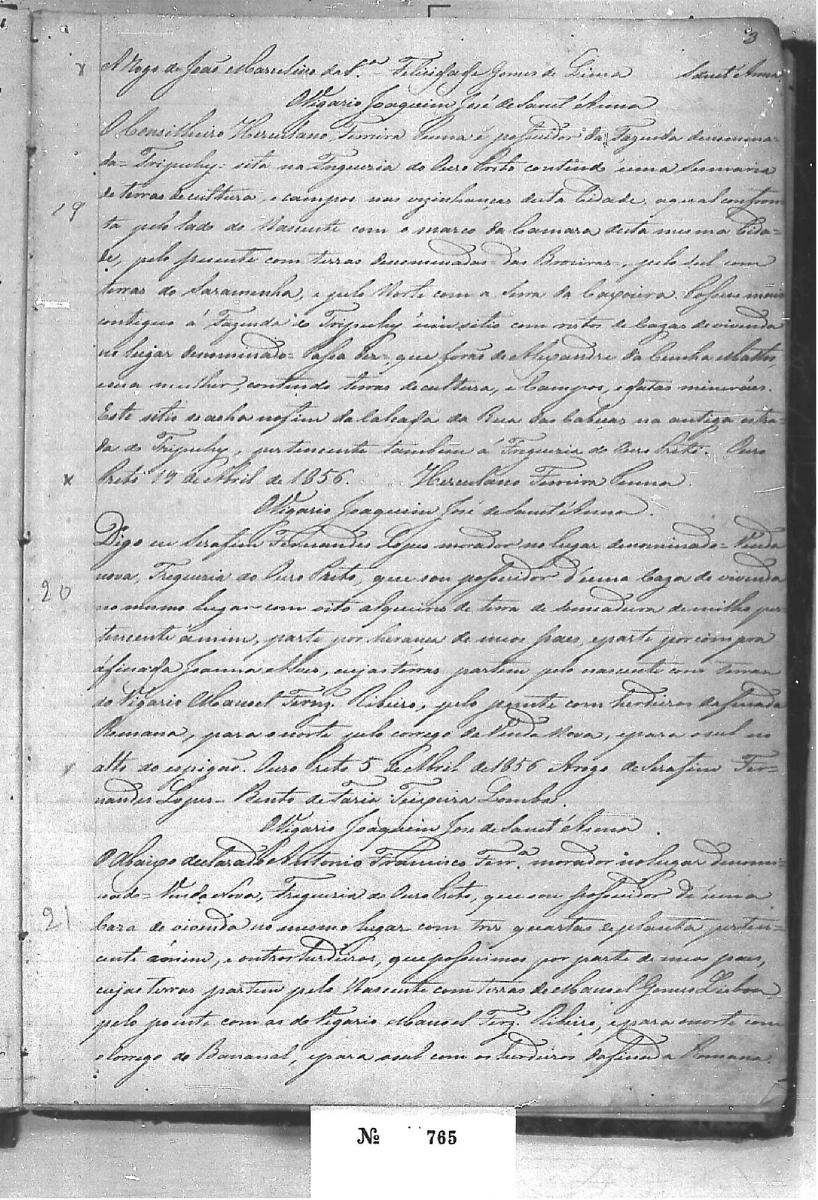 3
A Rogo de João Marcelino da S.ª Felicidade Gomes de Lima Sant'Anna
O Vigario Joaquim José de Sant'Anna
19
O Conselheiro Herculano Ferreira Penna é possuidor da Fazenda denomina-
da = Tripuhy = sita na Freguezia do Ouro Preto contendo uma Sesmaria
de terras de cultura, e campos nas vizinhanças desta Cidade, a qual confron-
ta pelo lado do Nascente com o marco da Camara desta mesma Cida-
de, pelo poente com terras denominadas das pelo Sul com
terras do Saramenha, e pelo Norte com a Serra da Caxoeira. Possue mais
contiguo á Fazenda do Tripuhy um sitio com restos de Cazas de vivenda
no lugar denominado = Passa Dez = que forão de Alexandre da Cunha Mattos,
e sua mulher, contendo terras de cultura, e Campos, e datas mineráes.
Este sitio se acha no fim da Calçada da Rua das Cabeças na antiga estra-
da do Tripuhy, pertencente tambem á Freguezia do Ouro Preto. Ouro
Preto 17 de Abril de 1856. Herculano Ferreira Penna.
O Vigario Joaquim José de Sant'Anna.
20
Digo eu Serafim Fernandes Lopes morador no lugar denominado = Venda
nova, Freguezia do Ouro Preto, que sou possuidor d'uma Caza de vivenda
no mesmo lugar com oito alqueires de terra de semeadura de milho per-
tencente á mim, parte por herança de meos paes, e parte por compra
a finada Joanna Alves, cujas terras partem pelo nascente com terras
do Vigario Manoel Ferz. Ribeiro, pelo poente com herdeiros da finada
Romana, para o norte pelo corrego da Venda Nova, e para o sul no
alto do espigão. Ouro Preto 5 de Abril de 1856 Arogo de Serafim Fer-
nandes Lopes = Bento de Faria Teixeira Lomba.
O Vigario Joaquim José de Sant'Anna.
21
O Abaixo declarado Antonio Francisco Ferr.ª morador no lugar denomi-
nado = Venda Nova, Freguezia do Ouro Preto, que sou possuidor de uma
Caza de vivenda no mesmo lugar com tres quartas de planta perten-
cente á mim, e outros herdeiros, que possuimos por parte de meos paes,
cujas terras partem pelo Nascente com terras de Manoel Gomes Lisboa
pelo poente com as do Vigario Manoel Ferz. Ribeiro, e para o norte com
o Corrego do Bananal, e para o sul com os herdeiros da finada Romana.
Nº 765